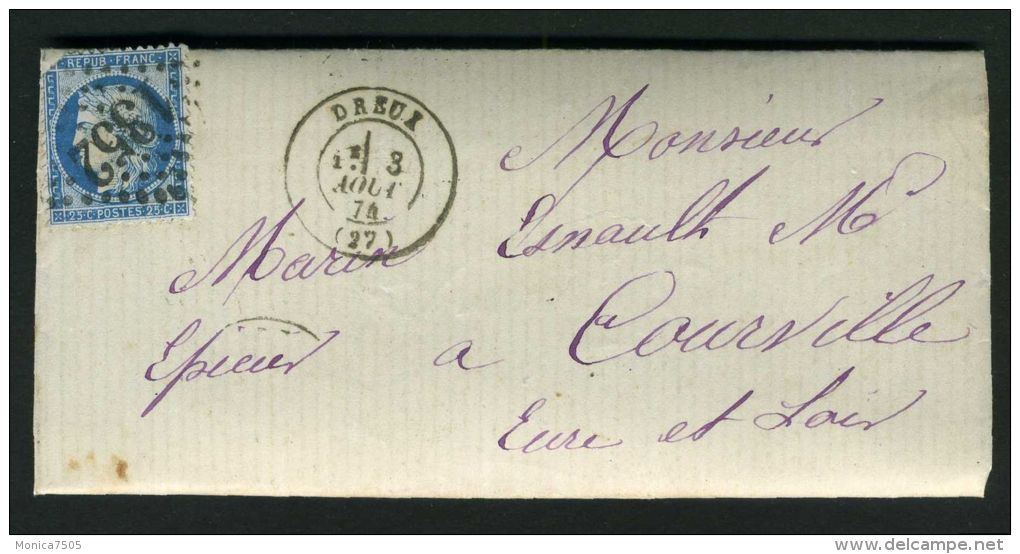 REPUB·FRANC·
1362
25·C·POSTES·25·C
DREUX
1E 3
AOUT
74
(27)
Monsieur
Esnault Md
Marin
Epicier a Courville
Eure et Loir
Monica7505
delcampe.net